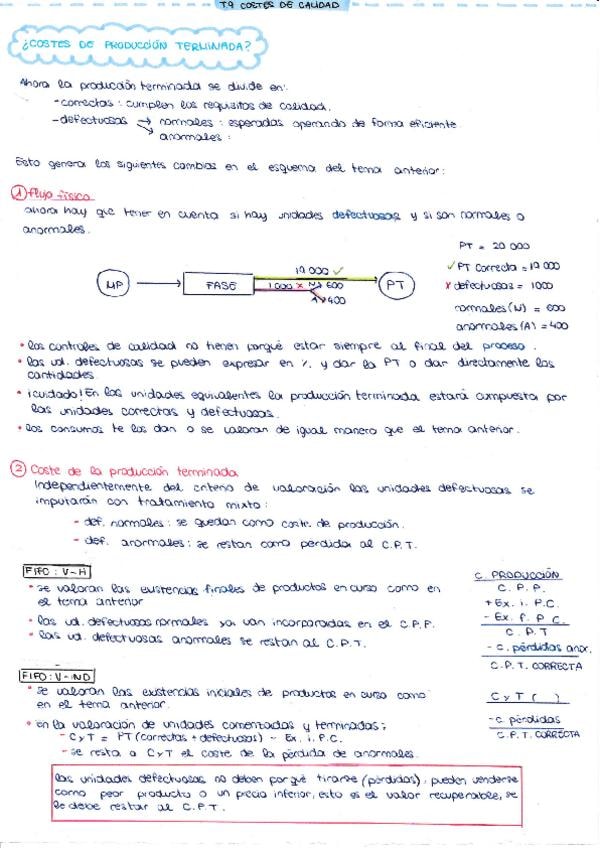 T.9 COSTES DE CALIDAD
¿COSTES DE PRODUCCIÓN TERMINADA?
Ahora la producción terminada se divide en:
- correctas : cumplen los requisitos de calidad.
- defectuosas → normales : esperadas operando de forma eficiente
anormales :
Esto genera los siguientes cambios en el esquema del tema anterior:
① Flujo físico
ahora hay que tener en cuenta si hay unidades defectuosas y si son normales o
anormales.
PT = 20 000
✓ PT correcta = 19 000
x defectuosas = 1000
normales (N) = 600
anormales (A) = 400
MP → FASE
19 000 ✓
1 000 x N 600
A 400
PT
• los controles de calidad no tienen porqué estar siempre al final del proceso.
• las ud. defectuosas se pueden expresar en % y dar la PT o dar directamente las
cantidades
• ¡cuidado! En las unidades equivalentes la producción terminada estará compuesta por
las unidades correctas y defectuosas.
• los consumos te los dan o se valoran de igual manera que el tema anterior.
② Coste de la producción terminada
Independientemente del criterio de valoración las unidades defectuosas se
imputarán con tratamiento mixto:
- def. normales : se quedan como coste de producción.
- def. anormales : se restan como perdida al C.P.T.
FIFO : V-H
• se valoran las existencias finales de productos en curso como en
el tema anterior
• las ud. defectuosas normales ya van incorporadas en el C.P.P.
• las ud. defectuosas anormales se restan al C.P.T.
C. PRODUCCIÓN
C. P. P.
+ Ex. i. P.C.
- Ex. f. P.C.
C. P. T
- C. pérdidas anor.
C.P.T. CORRECTA
FIFO : V-IND
• se valoran las existencias iniciales de productos en curso como
en el tema anterior.
• en la valoración de unidades comenzadas y terminadas;
- CyT = PT (correctas + defectuosas) - Ex. i. P.C.
- se resta a CyT el coste de la pérdida de anormales.
CyT ( )
- C. pérdidas
C.P.T. CORRECTA
las unidades defectuosas no deben porqué tirarse (pérdidas), pueden venderse
como peor producto a un precio inferior, esto es el valor recuperable, se
le debe restar al C.P.T.